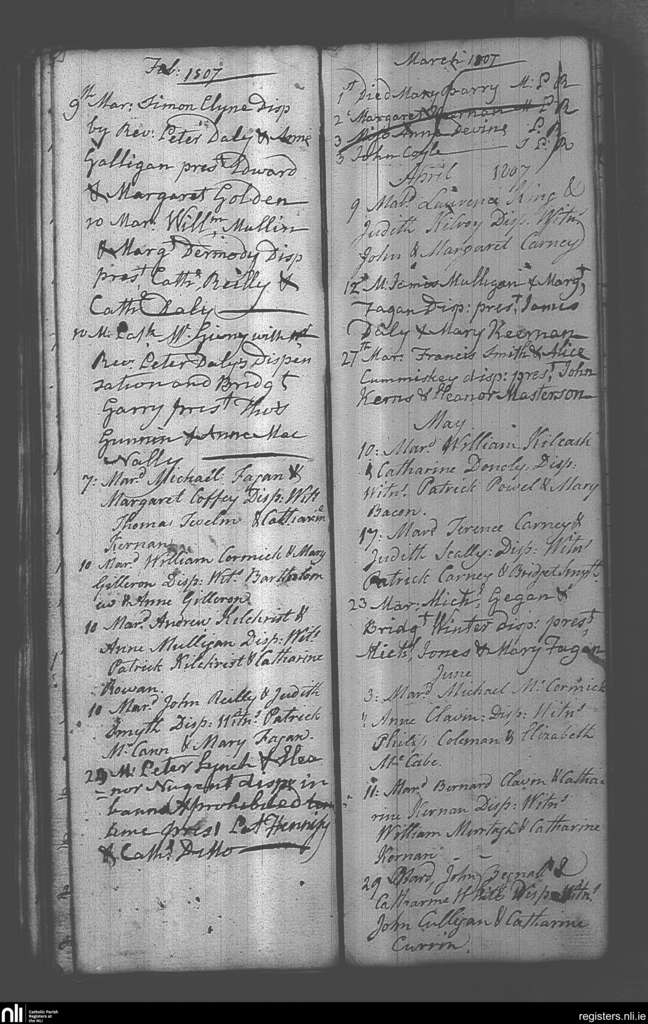 Feb: 1807
9th Mar: Simon Clyne Disp
by Rev: Peter Daly & Anne
Galligan prest Edward
& Margaret Golden
10 Mar: Willm Mullin
& Margt Dermody Disp
prest Cathe Reilly &
Cathe Daly
10 M: Patk Mc Givny with
Rev: Peter Dalys Dispen
sation and Bridgt
Garry prest Thos
Gunnin & Anne Mac
Nally
7: Mard Michael Fagan &
Margaret Coffey Disp: Wits
Thomas & Catharin
Kernan
10 Mard William Cormick & Mary
Gilleron Disp: Wits Bartholom
ew & Anne Gilleron
10 Mard Andrew Kilchrist &
Anne Mulligan Disp: Wits
Patrick Kilchrist & Catharine
Rowan.
10 Mard John Reilly & Judith
Smyth Disp: Witns Patrick
Mc Cann & Mary Fagan.
29 M: Peter Lynch & Elea
nor Nugent disp: in
banns & prohibited
time prest Pat Hennify
& Cathe Ditto
March 1807
1st Died Mary Garry M: L R
2d Margaret Kiernan M: L R
3 Miss Anne Devine L: R
3 John Coyle I L: R
April 1807
9 Mard Laurence King &
Judith Kilroy Disp. Witns
John & Margaret Carney
12th M. James Mulligan & Margt
Fagan Disp: prest James
Daly & Mary Keernan
27th Mar: Francis Smith & Alice
Cummiskey disp: prest John
Kerns & Eleanor Masterson
May
10: Mard William Kilcash
& Catharine Donoly. Disp:
Witns Patrick Powel & Mary
Bacon.
17: Mard Terence Carney &
Judith Scally: Disp: Witns
Patrick Carney & Bridget Smyth
23 Mar: Michl Gegan &
Bridgt Winter disp: prest
Michl Jones & Mary Fagan
June
3: Mard Michael Mc Cormick
& Anne Clavin: Disp: Witns
Philip Coleman & Elizabeth
Mc Cabe.
11: Mard Bernard Clavin & Catha
rine Kernan Disp: Witns
William Murtagh & Catharine
Kernan
29 Mard John &
Catharine White Disp: Witns
John Culligan & Catharine
Currin.
nli Catholic Parish
Registers at
the NLI
registers.nli.ie